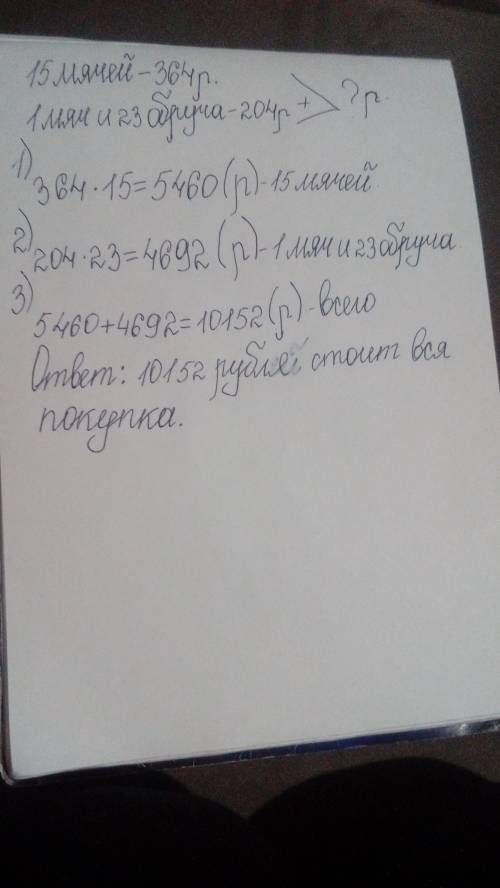 15 мячей - 364р.
1 мяч и 23 обруча - 204р + ? р.
1)
364 · 15 = 5460 (р) - 15 мячей.
2)
204 · 23 = 4692 (р) - 1 мяч и 23 обруча
3)
5460 + 4692 = 10152 (р) - всего
Ответ: 10152 рубля стоит вся
покупка.